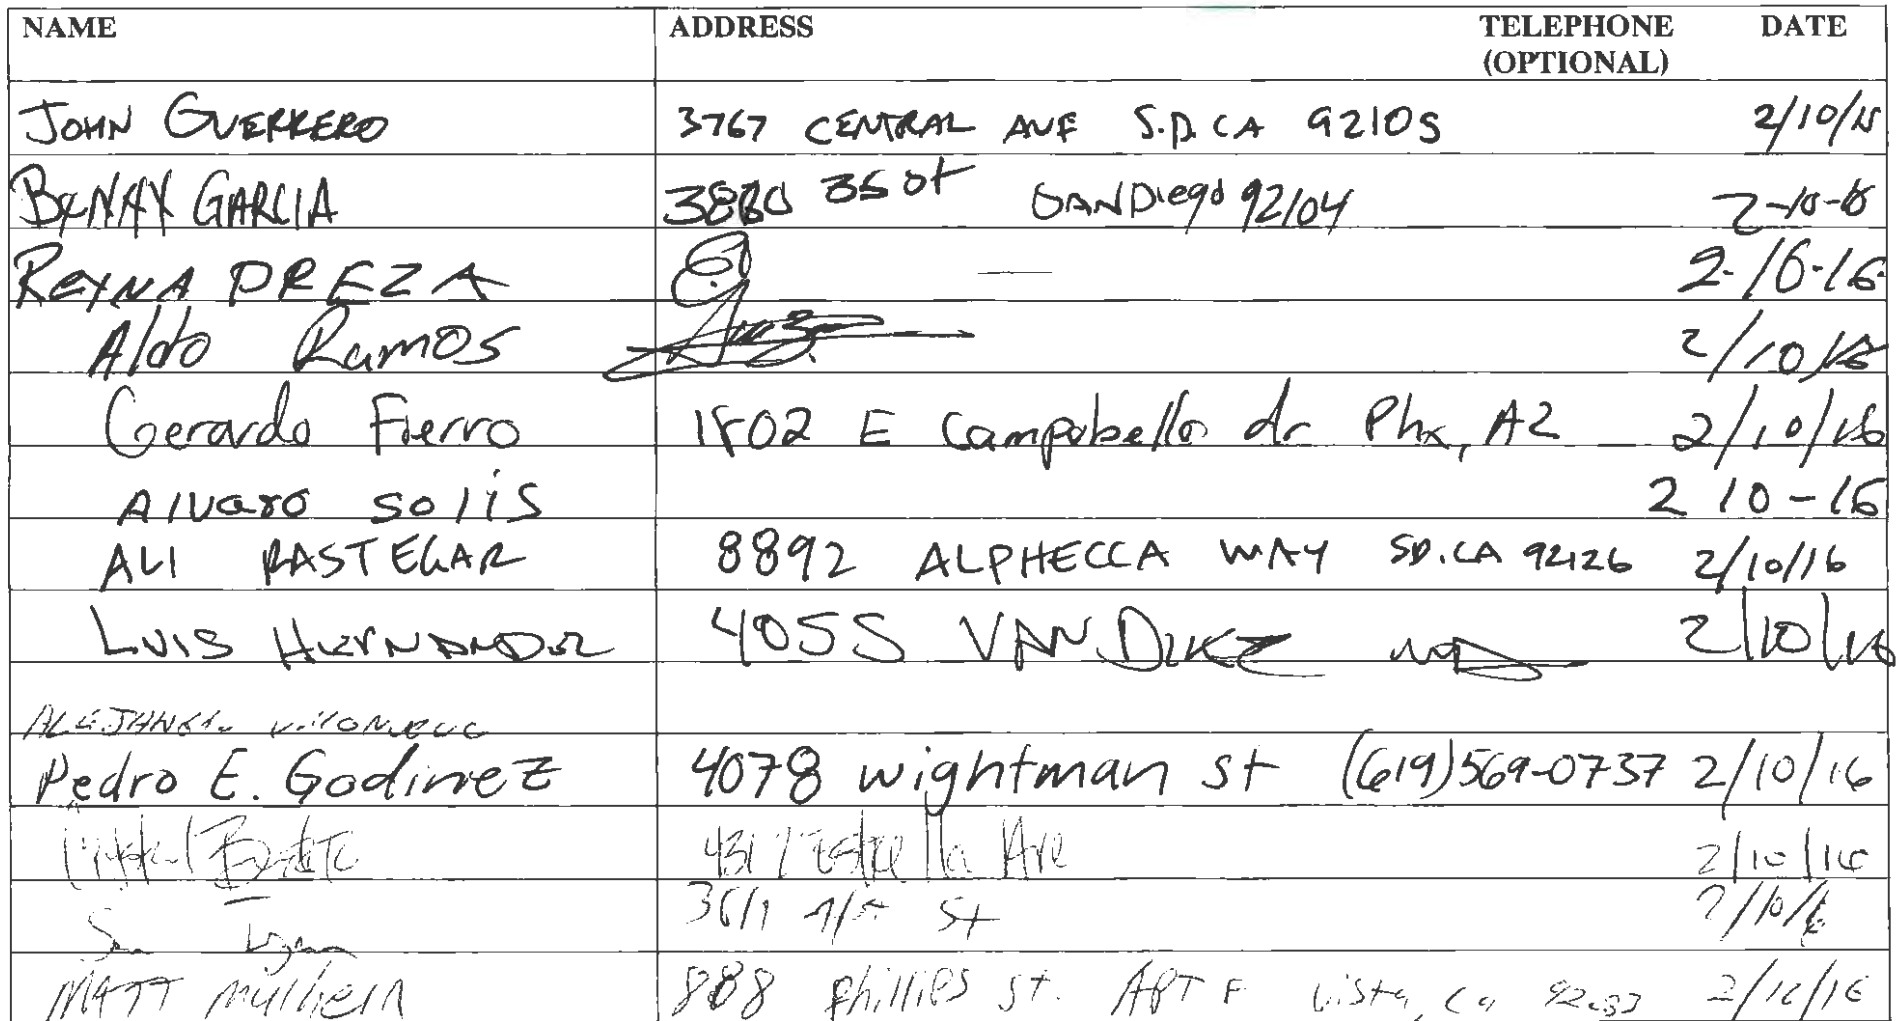 NAME ADDRESS TELEPHONE DATE
(OPTIONAL)
JOHN GUERRERO 3767 CENTRAL AVE S.D. CA 92105 2/10/16
GARCIA 3880 35 St SAN Diego 92104 2-10-16
REYNA PREZA — 2-10-16
Aldo Ramos 2/10/16
Gerardo Fierro 1802 E Campobello dr Phx, AZ 2/10/16
Alvaro solis 2 10-16
ALI RASTEGAR 8892 ALPHECCA WAY SD.CA 92126 2/10/16
LUIS HERNANDEZ 4055 VAN DIKE 2/10/16
Pedro E. Godinez 4078 wightman st (619)569-0737 2/10/16
4317 Estrella Ave 2/10/16
St 2/10/16
MATT Mulhern 888 Phillips St. APT F Vista, Ca 2/10/16